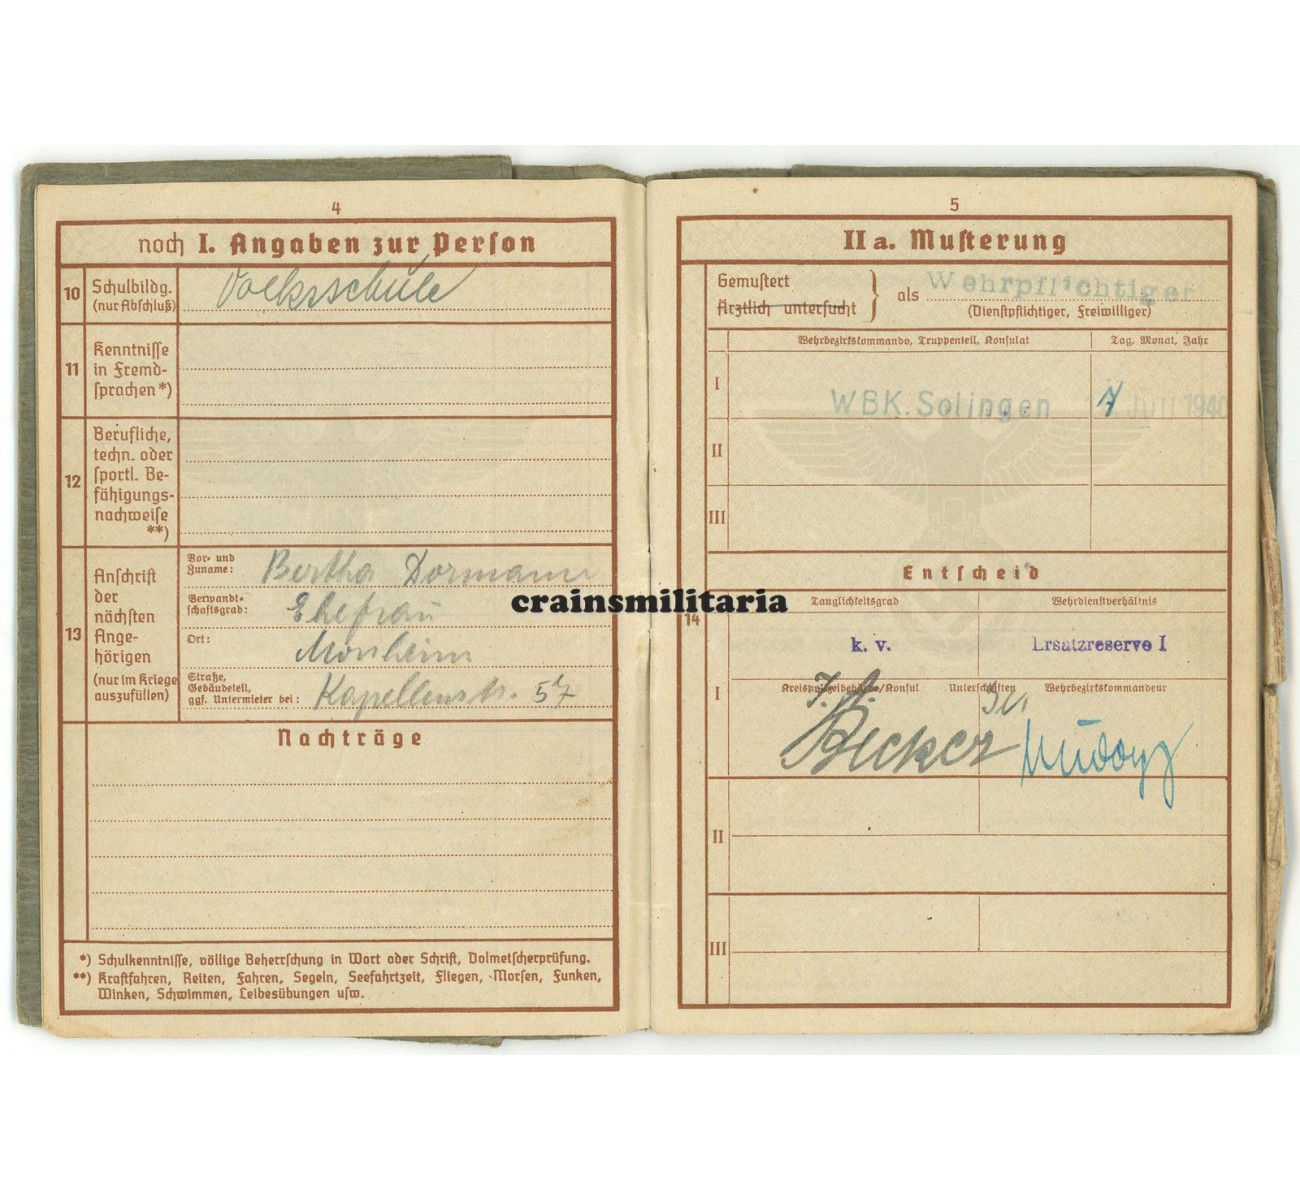 4
noch I. Angaben zur Person
10 Schulbildg.
(nur Abschluß)
Volksschule
11 Kenntnisse
in Fremd-
sprachen *)
12 Berufliche,
techn. oder
sportl. Be-
fähigungs-
nachweise
**)
13 Anschrift
der
nächsten
Ange-
hörigen
(nur im Kriege
auszufüllen)
Vor- und
Zuname: Bertha Dormann
Verwandt-
schaftsgrad: Ehefrau
Ort: Monheim
Straße,
Gebäudeteil,
ggf. Untermieter bei: Kapellenstr. 57
Nachträge
*) Schulkenntnisse, völlige Beherrschung in Wort oder Schrift, Dolmetscherprüfung.
**) Kraftfahren, Reiten, Fahren, Segeln, Seefahrtzeit, Fliegen, Morsen, Funken,
Winken, Schwimmen, Leibesübungen usw.
crainsmilitaria
5
II a. Musterung
Gemustert
Ärztlich untersucht
als Wehrpflichtiger
(Dienstpflichtiger, Freiwilliger)
Wehrbezirkskommando, Truppenteil, Konsulat Tag, Monat, Jahr
I WBK. Solingen 7 Juli 1940
II
III
Entscheid
14 Tauglichkeitsgrad Wehrdienstverhältnis
k. v. Ersatzreserve I
I Kreispolizeibehörde/Konsul Unterschriften Wehrbezirkskommandeur
Becker
II
III